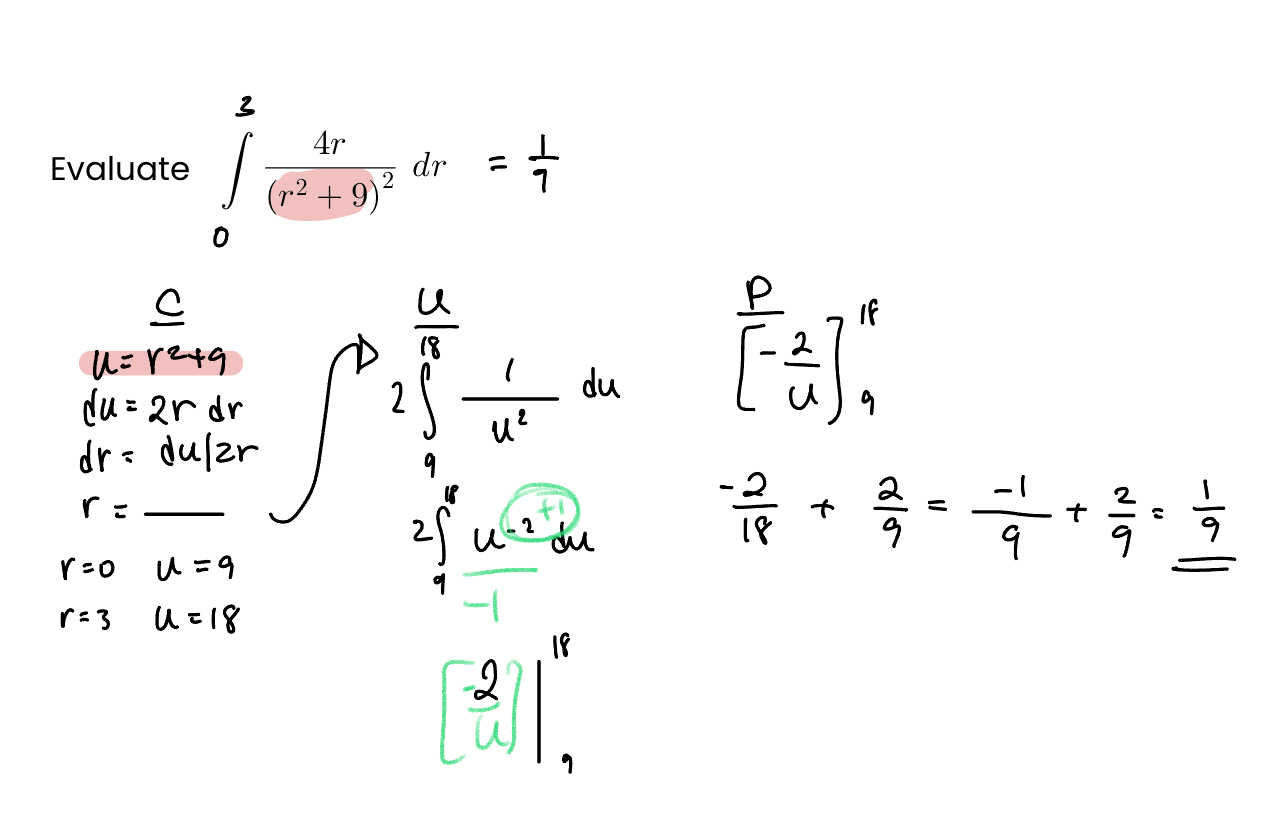 Evaluate ∫₀³ 4r/(r² + 9)² dr = 1/9
C
u = r²+9
du = 2r dr
dr = du/2r
r = ___
r=0 u = 9
r=3 u = 18
U
2 ∫₉¹⁸ 1/u² du
2 ∫₉¹⁸ u⁻²⁺¹ du
-1
[-2/u] |₉¹⁸
P
[-2/u]₉¹⁸
-2/18 + 2/9 = -1/9 + 2/9 = 1/9